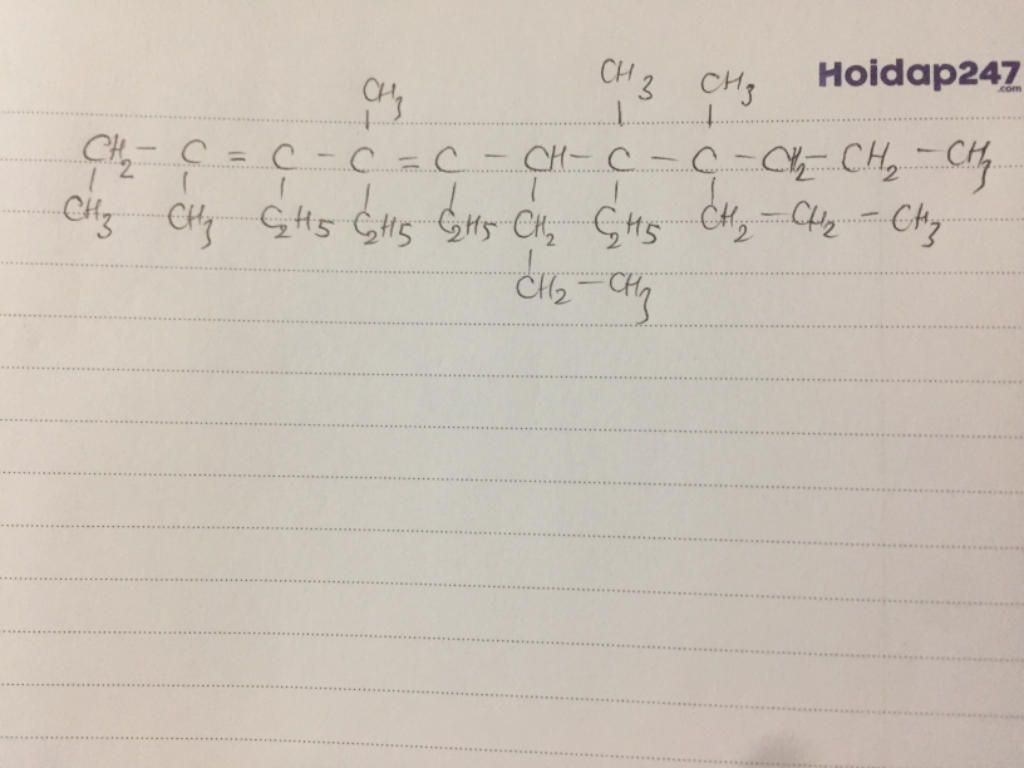 Hoidap247
.com
CH3 CH3 CH3
CH2 - C = C - C = C - CH - C - C - CH2 - CH2 - CH3
CH3 CH3 C2H5 C2H5 C2H5 CH2 C2H5 CH2 - CH2 - CH3
CH2 - CH3